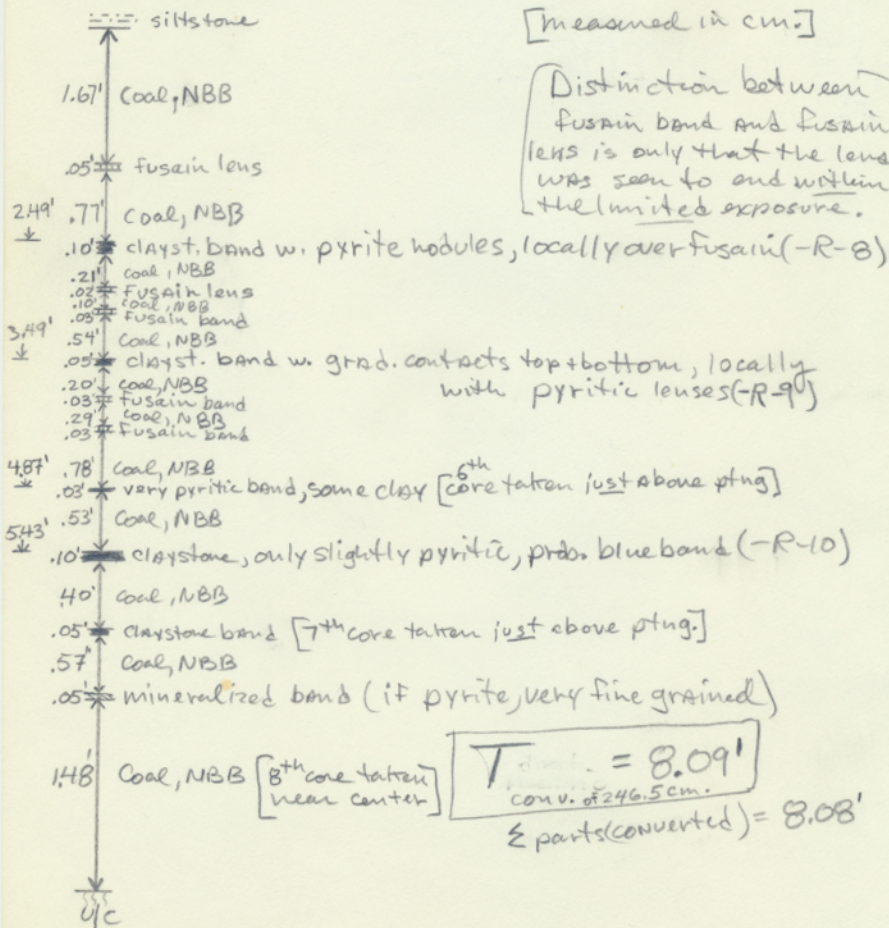 siltstone
[measured in cm.]
1.67' Coal, NBB
Distinction between
fusain band and fusain
lens is only that the lens
was seen to end within
the limited exposure.
.05' fusain lens
2.49' .77' Coal, NBB
.10' clayst. band w. pyrite nodules, locally over fusain (-R-8)
.21' coal, NBB
.02' fusain lens
.10' coal, NBB
.03' fusain band
3.49' .54' Coal, NBB
.05' clayst. band w. grad. contacts top + bottom, locally
with pyritic lenses (-R-9)
.20' coal, NBB
.03' fusain band
.29' coal, NBB
.03' fusain band
4.87' .78' Coal, NBB
.03' very pyritic band, some clay [6th core taken just above ptng]
5.43' .53' Coal, NBB
.10' claystone, only slightly pyritic, prob. blue band (-R-10)
.40' coal, NBB
.05' claystone band [7th core taken just above ptng.]
.57" Coal, NBB
.05' mineralized band (if pyrite, very fine grained)
1.48' Coal, NBB [8th core taken
near center]
T = 8.09'
conv. of 246.5 cm.
Σ parts (converted) = 8.08'
U/C